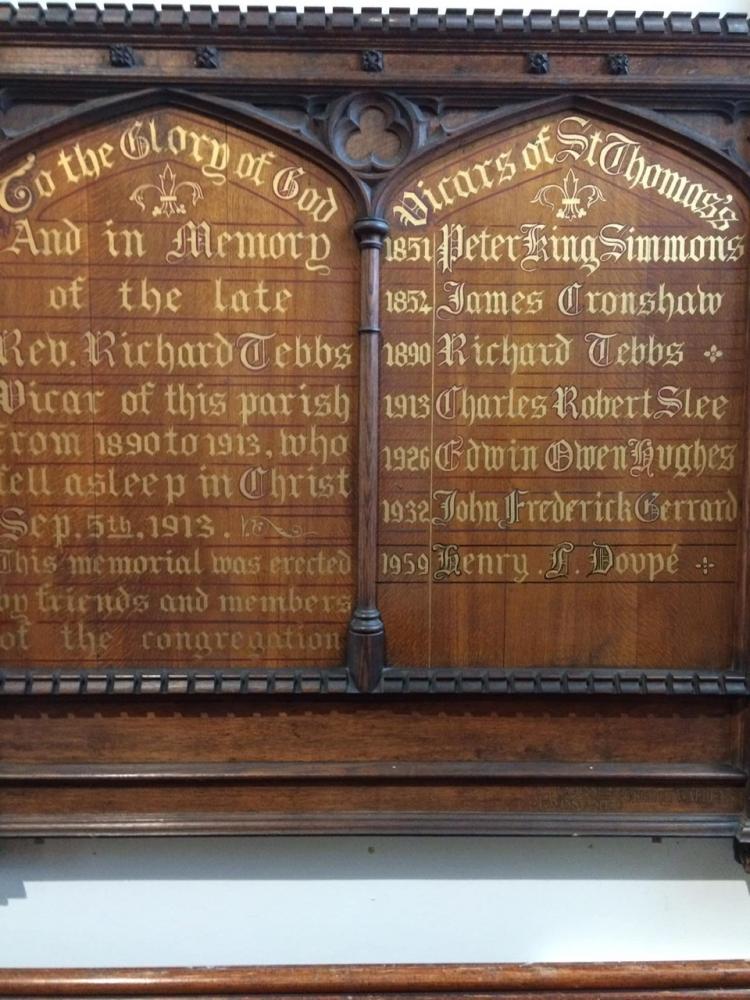 To the Glory of God
And in Memory
of the late
Rev. Richard Tebbs
Vicar of this parish
from 1890 to 1913, who
fell asleep in Christ
Sep. 5th, 1913.
This memorial was erected
by friends and members
of the congregation
Vicars of St Thomas's
1851 Peter King Simmons
1852 James Cronshaw
1890 Richard Tebbs
1913 Charles Robert Slee
1926 Edwin Owen Hughes
1932 John Frederick Gerrard
1959 Henry . F. Doupé